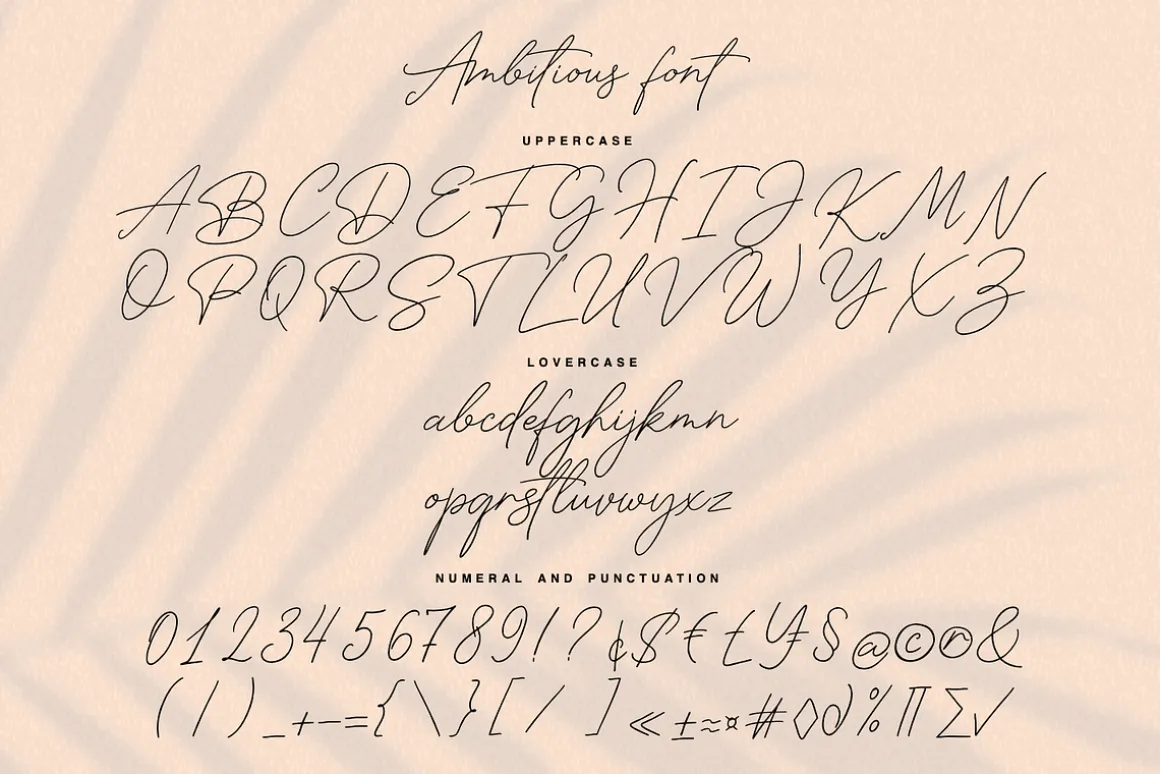 Ambitious font
UPPERCASE
ABCDEFGHIJKMN
OPQRSTLUVWYXZ
LOVERCASE
abcdefghijkmn
opqrstluvwyxz
NUMERAL AND PUNCTUATION
0123456789!?¢$€£¥§@©®&
(/)_+-={\}[/]«±≈¤#◊∂%∏∑√